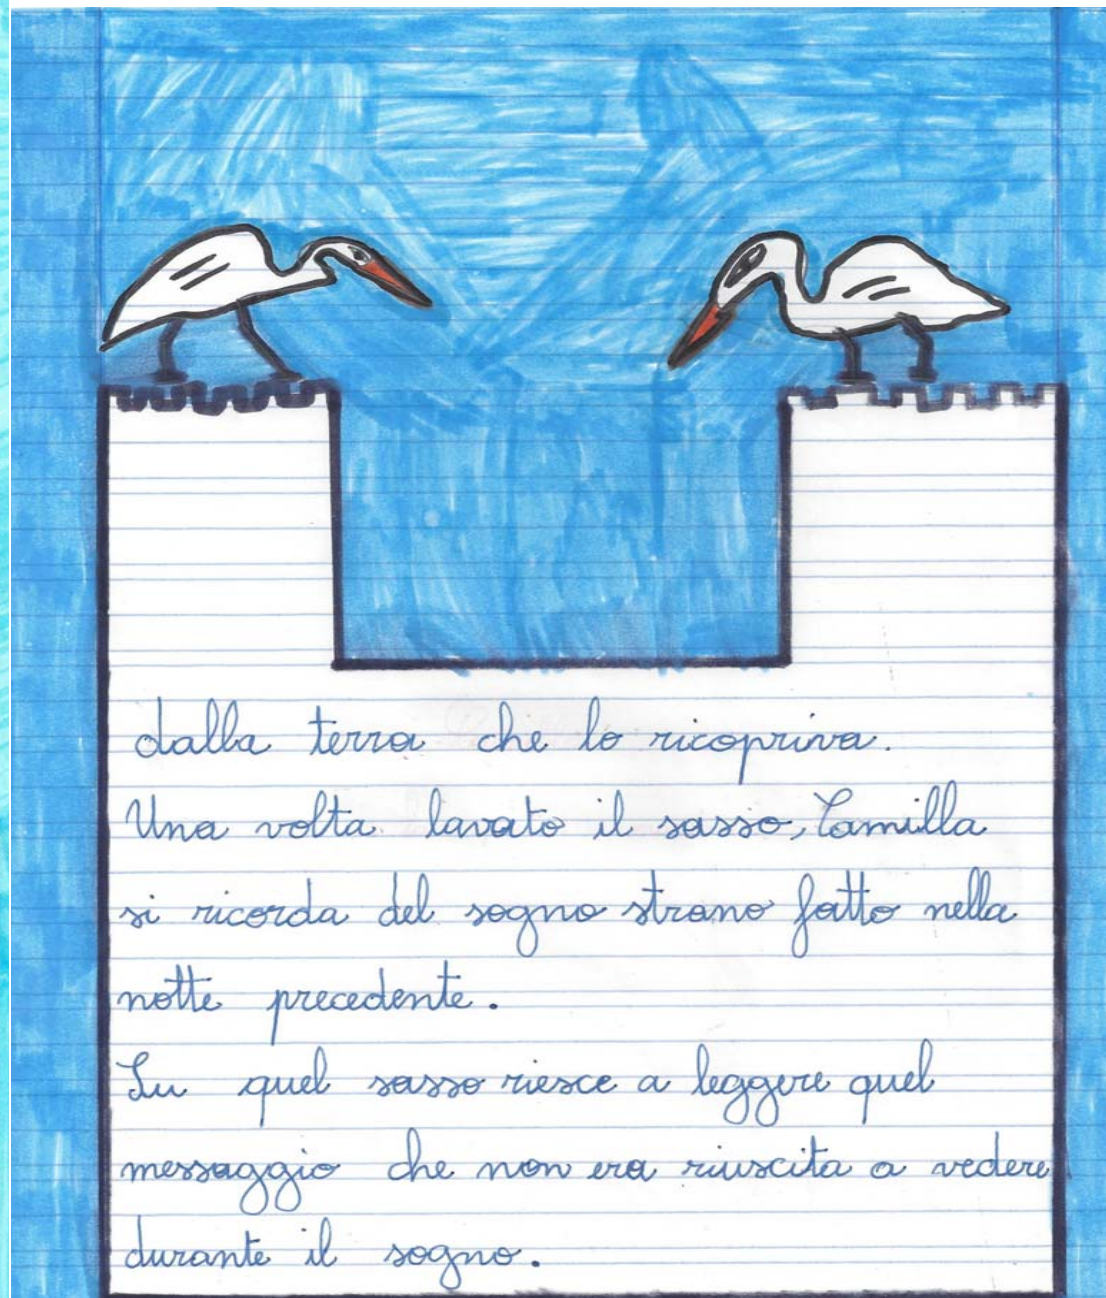 dalla terra che lo ricopriva.
Una volta lavato il sasso, Camilla
si ricorda del sogno strano fatto nella
notte precedente.
Su quel sasso riesce a leggere quel
messaggio che non era riuscita a vedere
durante il sogno.